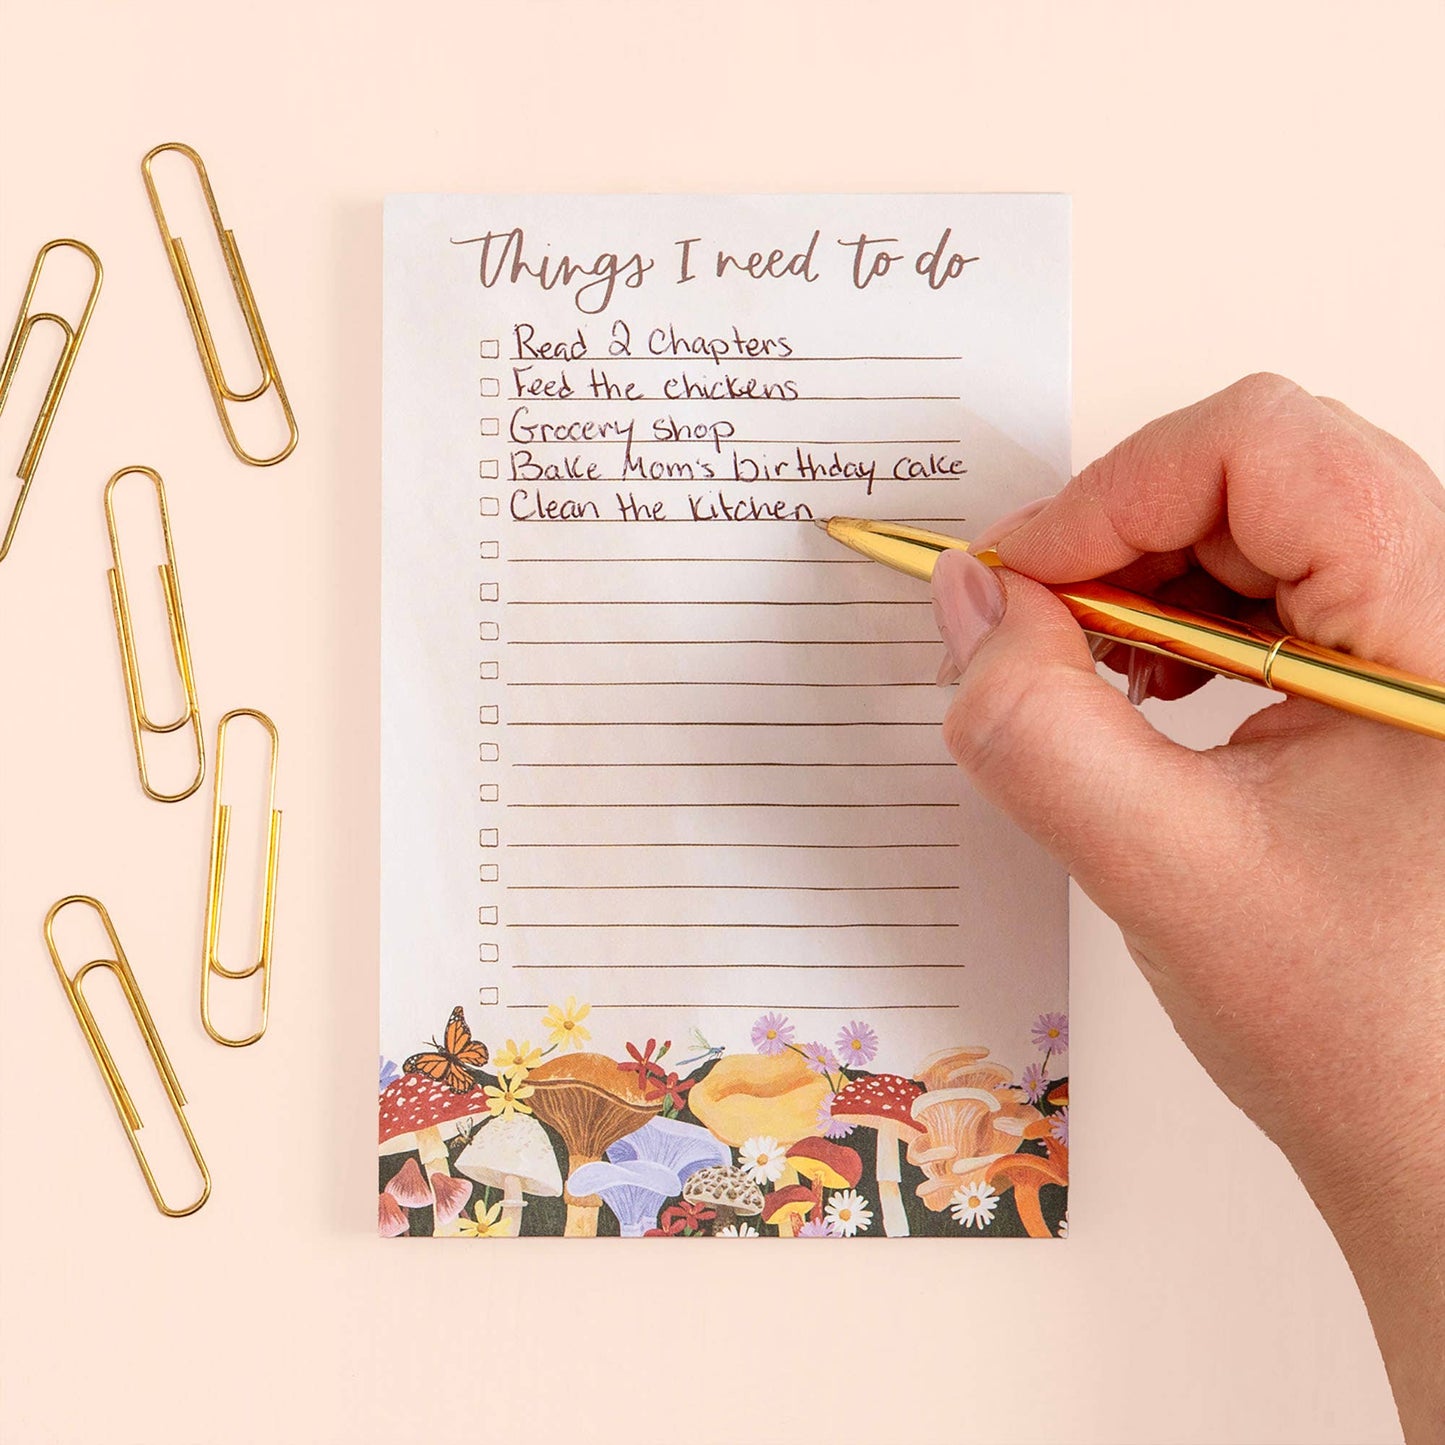 Things I need to do
Read 2 Chapters
Feed the chickens
Grocery shop
Bake Mom's birthday cake
Clean the kitchen